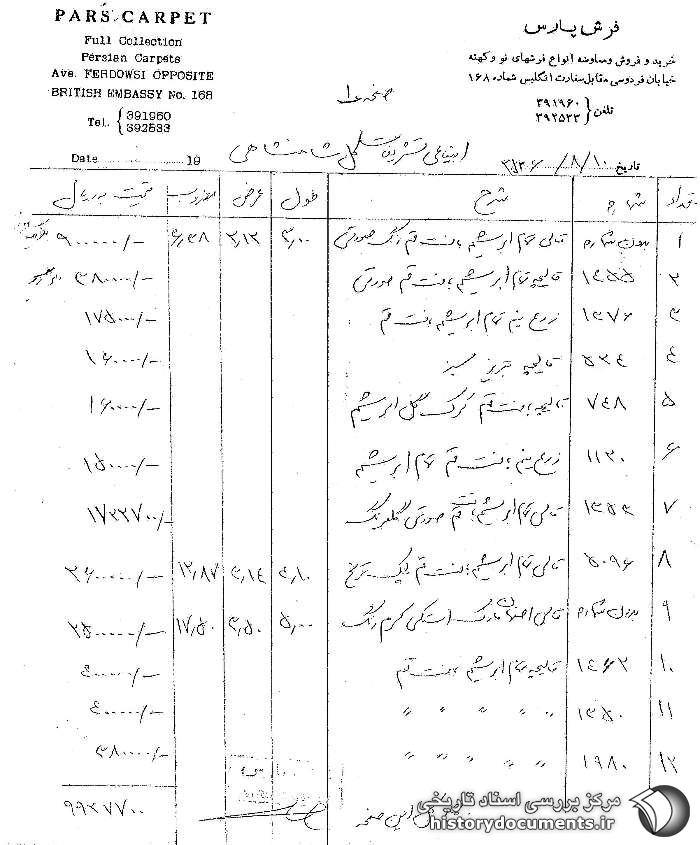 PARS CARPET
Full Collection
Persian Carpets
Ave. FERDOWSI OPPOSITE
BRITISH EMBASSY No. 168
Tel. 391960
392533
Date 19
فرش پارس
خرید و فروش و معاوضه انواع فرشهای نو و کهنه
خیابان فردوسی مقابل سفارت انگلیس شماره ۱۶۸
تلفن ۳۹۱۹۶۰
۳۹۲۵۳۳
صفحه
تاریخ
تعداد شماره شرح طول عرض مضروب قیمت به ریال
۱ بدون شماره قالی تمام ابریشم بافت قم رنگ صورتی ۳٫۰۰ ۲٫۱۳ ۶٫۳۸ ۹۰۰۰۰۰/-
۲ ۱۴۵۵ قالیچه تمام ابریشم بافت قم صورتی ۳۸۰۰۰۰/-
۳ ۱۳۷۶ زرع نیم تمام ابریشم بافت قم ۱۷۵۰۰۰/-
۴ ۵۳۴ قالیچه تبریز سبز ۱۶۰۰۰۰/-
۵ ۷۴۸ قالیچه بافت قم کرک گل ابریشم ۱۶۰۰۰۰/-
۶ ۱۱۳۰ زرع نیم بافت قم تمام ابریشم ۱۵۰۰۰۰/-
۷ قالی تمام ابریشم بافت قم صورتی ۱۷۳۲۷۰۰/-
۸ ۵۰۹۶ قالی تمام ابریشم بافت قم ترنج ۴٫۱۰ ۳٫۱۴ ۱۲٫۸۷
۹ بدون شماره قالی اصفهان کرم رنگ ۵٫۰۰ ۳٫۵۰ ۱۷٫۵۰ ۲۵۰۰۰۰۰/-
۱۰ ۱۴۶۲ قالیچه تمام ابریشم بافت قم ۴۰۰۰۰۰/-
۱۱ ۱۳۵۰ " " " " " ۴۰۰۰۰۰/-
۱۲ ۱۹۸۰ " " " " " ۳۸۰۰۰۰/-
این صفحه ۹۹۳۷۷۰۰
مرکز بررسی اسناد تاریخی
historydocuments.ir